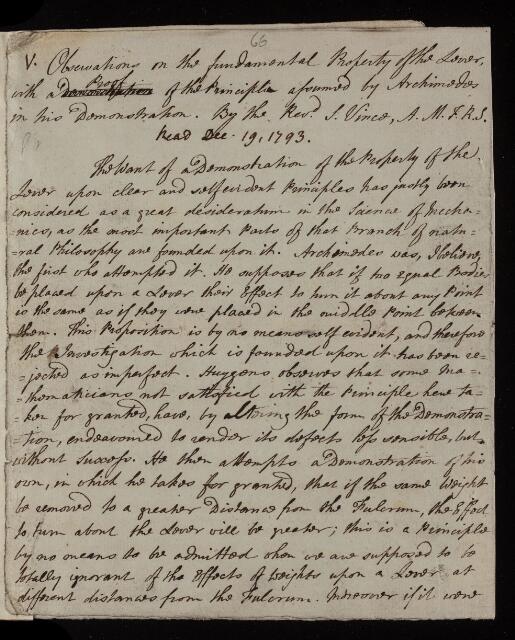 66
V. Observations on the fundamental Property of the Lever,
with a Demonstration Proof of the Principle assumed by Archimedes
in his Demonstration. By the Revd. S. Vince, A. M. F.R.S.
Read Dec. 19, 1793.
The Want of a Demonstration of the Property of the
Lever upon clear and self evident Principles has justly been
considered as a great desideratum in the Science of Mecha-
-nics, as the most important Parts of that Branch of natu-
-ral Philosophy are founded upon it. Archimedes was, I believe,
the first who attempted it. He supposes that if two equal Bodies
be placed upon a Lever their Effect to turn it about any Point
is the same as if they were placed in the middle Point between
them. This Proposition is by no means self evident, and therefore
the Investigation which is founded upon it has been re-
-jected as imperfect. Huygens observes that some Ma-
-thematicians not satisfied with the Principle here ta-
ken for granted, have, by altering the form of the Demonstra-
-tion, endeavoured to render its defects less sensible, but
without Success. He then attempts a Demonstration of his
own, in which he takes for granted, that if the same Weight
be removed to a greater Distance from the Fulcrum, the Effect
to turn about the Lever will be greater; this is a Principle
by no means to be admitted when we are supposed to be
totally ignorant of the Effects of Weights upon a Lever at
different distances from the Fulcrum. Moreover if it were